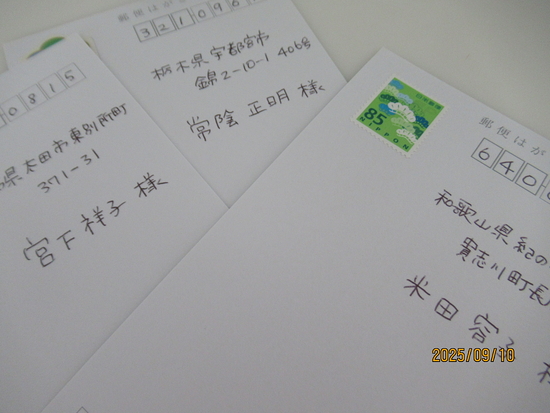 郵便はが
321096
栃木県宇都宮市
錦2-10-1 406号
常陰 正明 様
0815
県太田市東別所町
371-31
宮下 祥子 様
85
NIPPON
郵便はが
640
和歌山県紀の
貴志川町長
米田 容子
2025/09/10